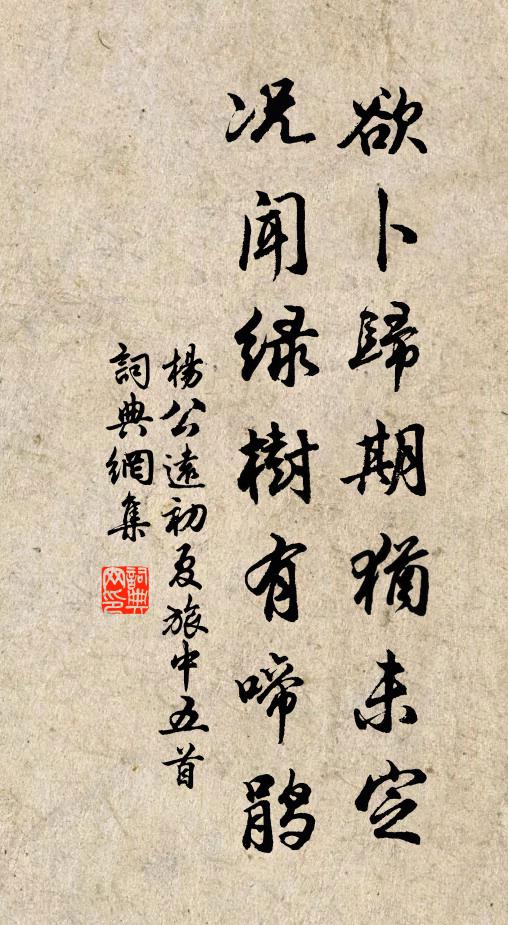 欲卜歸期猶未定
况闻绿樹有啼鹃
楊公遠初夏旅中五首
詞典網集
詞典网印